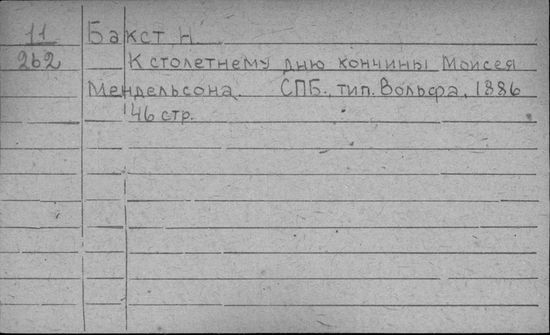 11 Бакст Н.
262 К столетнему дню кончины Моисея
Мендельсона. СПБ., тип. Вольфа, 1886
46 стр.